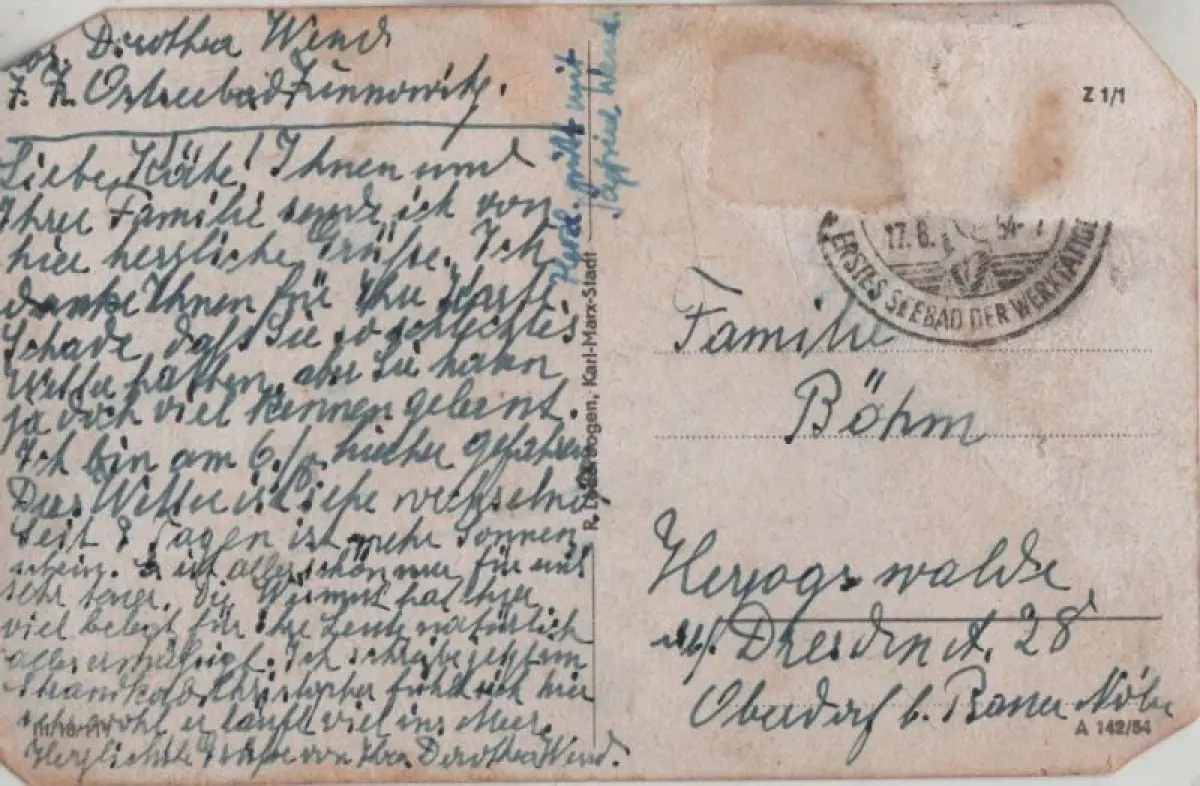 Dorothea Wend
z. Z. Ostseebad Zinnowitz.
Liebe Käthe! Ihnen und
Ihrer Familie sende ich von
hier herzliche Grüße. Ich
danke Ihnen für Ihre Karte.
Schade, daß Sie so schlechtes
Wetter hatten, aber Sie haben
ja doch viel kennen gelernt.
Ich bin am 6./ hierher gefahren
Das Wetter ist sehr wechselnd
Seit 8 Tagen ist mehr Sonnen
schein. Es ist alles schön nur für uns
sehr teuer. Die Wismut hat hier
viel belegt für ihre Leute natürlich
alles ermäßigt. Ich schreibe jetzt im
Strandkorb. Christopher fühlt sich hier
wohl er läuft viel ins Meer.
Herzlichste Grüße von Ihrer Dorothea Wend.
Herzl. grüßt mit
Siegfried Wend.
R. Karl-Marx-Stadt
III/18/
Z 1/1
17. 8. 54
ERSTES SEEBAD DER WERKTÄTIGEN
Familie
Böhm
Herzogswalde
Dresden A. 28
Oberdorf b. Bauer
A 142/54